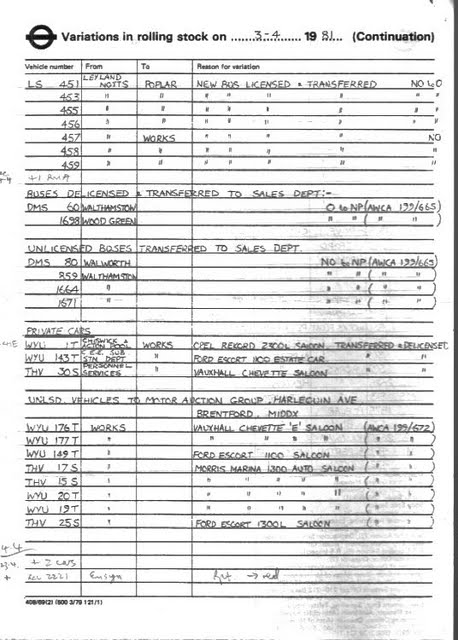 Variations in rolling stock on 3-4 1981 (Continuation)
Vehicle number From To Reason for variation
LS 451 LEYLAND NOTTS POPLAR NEW BUS LICENSED & TRANSFERRED NO to O
453 " " " " " " " "
455 " " " " " " " "
456 " " " " " " " "
457 " WORKS " " " " NO
458 " " " " " " "
459 " " " " " " "
+1 RMA
BUSES DELICENSED & TRANSFERRED TO SALES DEPT:-
DMS 60 WALTHAMSTOW O to NP (AWCA 199/665)
1698 WOOD GREEN " " " ( " " )
UNLICENSED BUSES TRANSFERRED TO SALES DEPT.
DMS 80 WALWORTH NO to NP (AWCA 199/665)
859 WALTHAMSTOW " " " ( " " )
1664 " " " " ( " " )
1671 " " " " ( " " )
PRIVATE CARS
WYU 1 T CHISWICK & ACTON POOL WORKS OPEL REKORD 2300L SALOON TRANSFERRED & DELICENSED
WYU 143 T C.E.E. SUB STN DEPT " FORD ESCORT 1100 ESTATE CAR " "
THV 30 S PERSONNEL SERVICES " VAUXHALL CHEVETTE SALOON " "
UNLSD. VEHICLES TO MOTOR AUCTION GROUP, HARLEQUIN AVE
BRENTFORD, MIDDX
WYU 176 T WORKS VAUXHALL CHEVETTE 'E' SALOON (AWCA 199/672)
WYU 177 T " " " " " ( " " )
WYU 149 T " FORD ESCORT 1100 SALOON ( " " )
THV 17 S " MORRIS MARINA 1300 AUTO SALOON ( " " )
THV 15 S " " " " " " ( " " )
WYU 20 T " " " " " " ( " " )
WYU 19 T " " " " " " ( " " )
THV 25 S " FORD ESCORT 1300L SALOON ( " " )
4-4
+ 2 CARS
+ 2221 Ensign → red
409/89(2) (500 3/79 121/1)